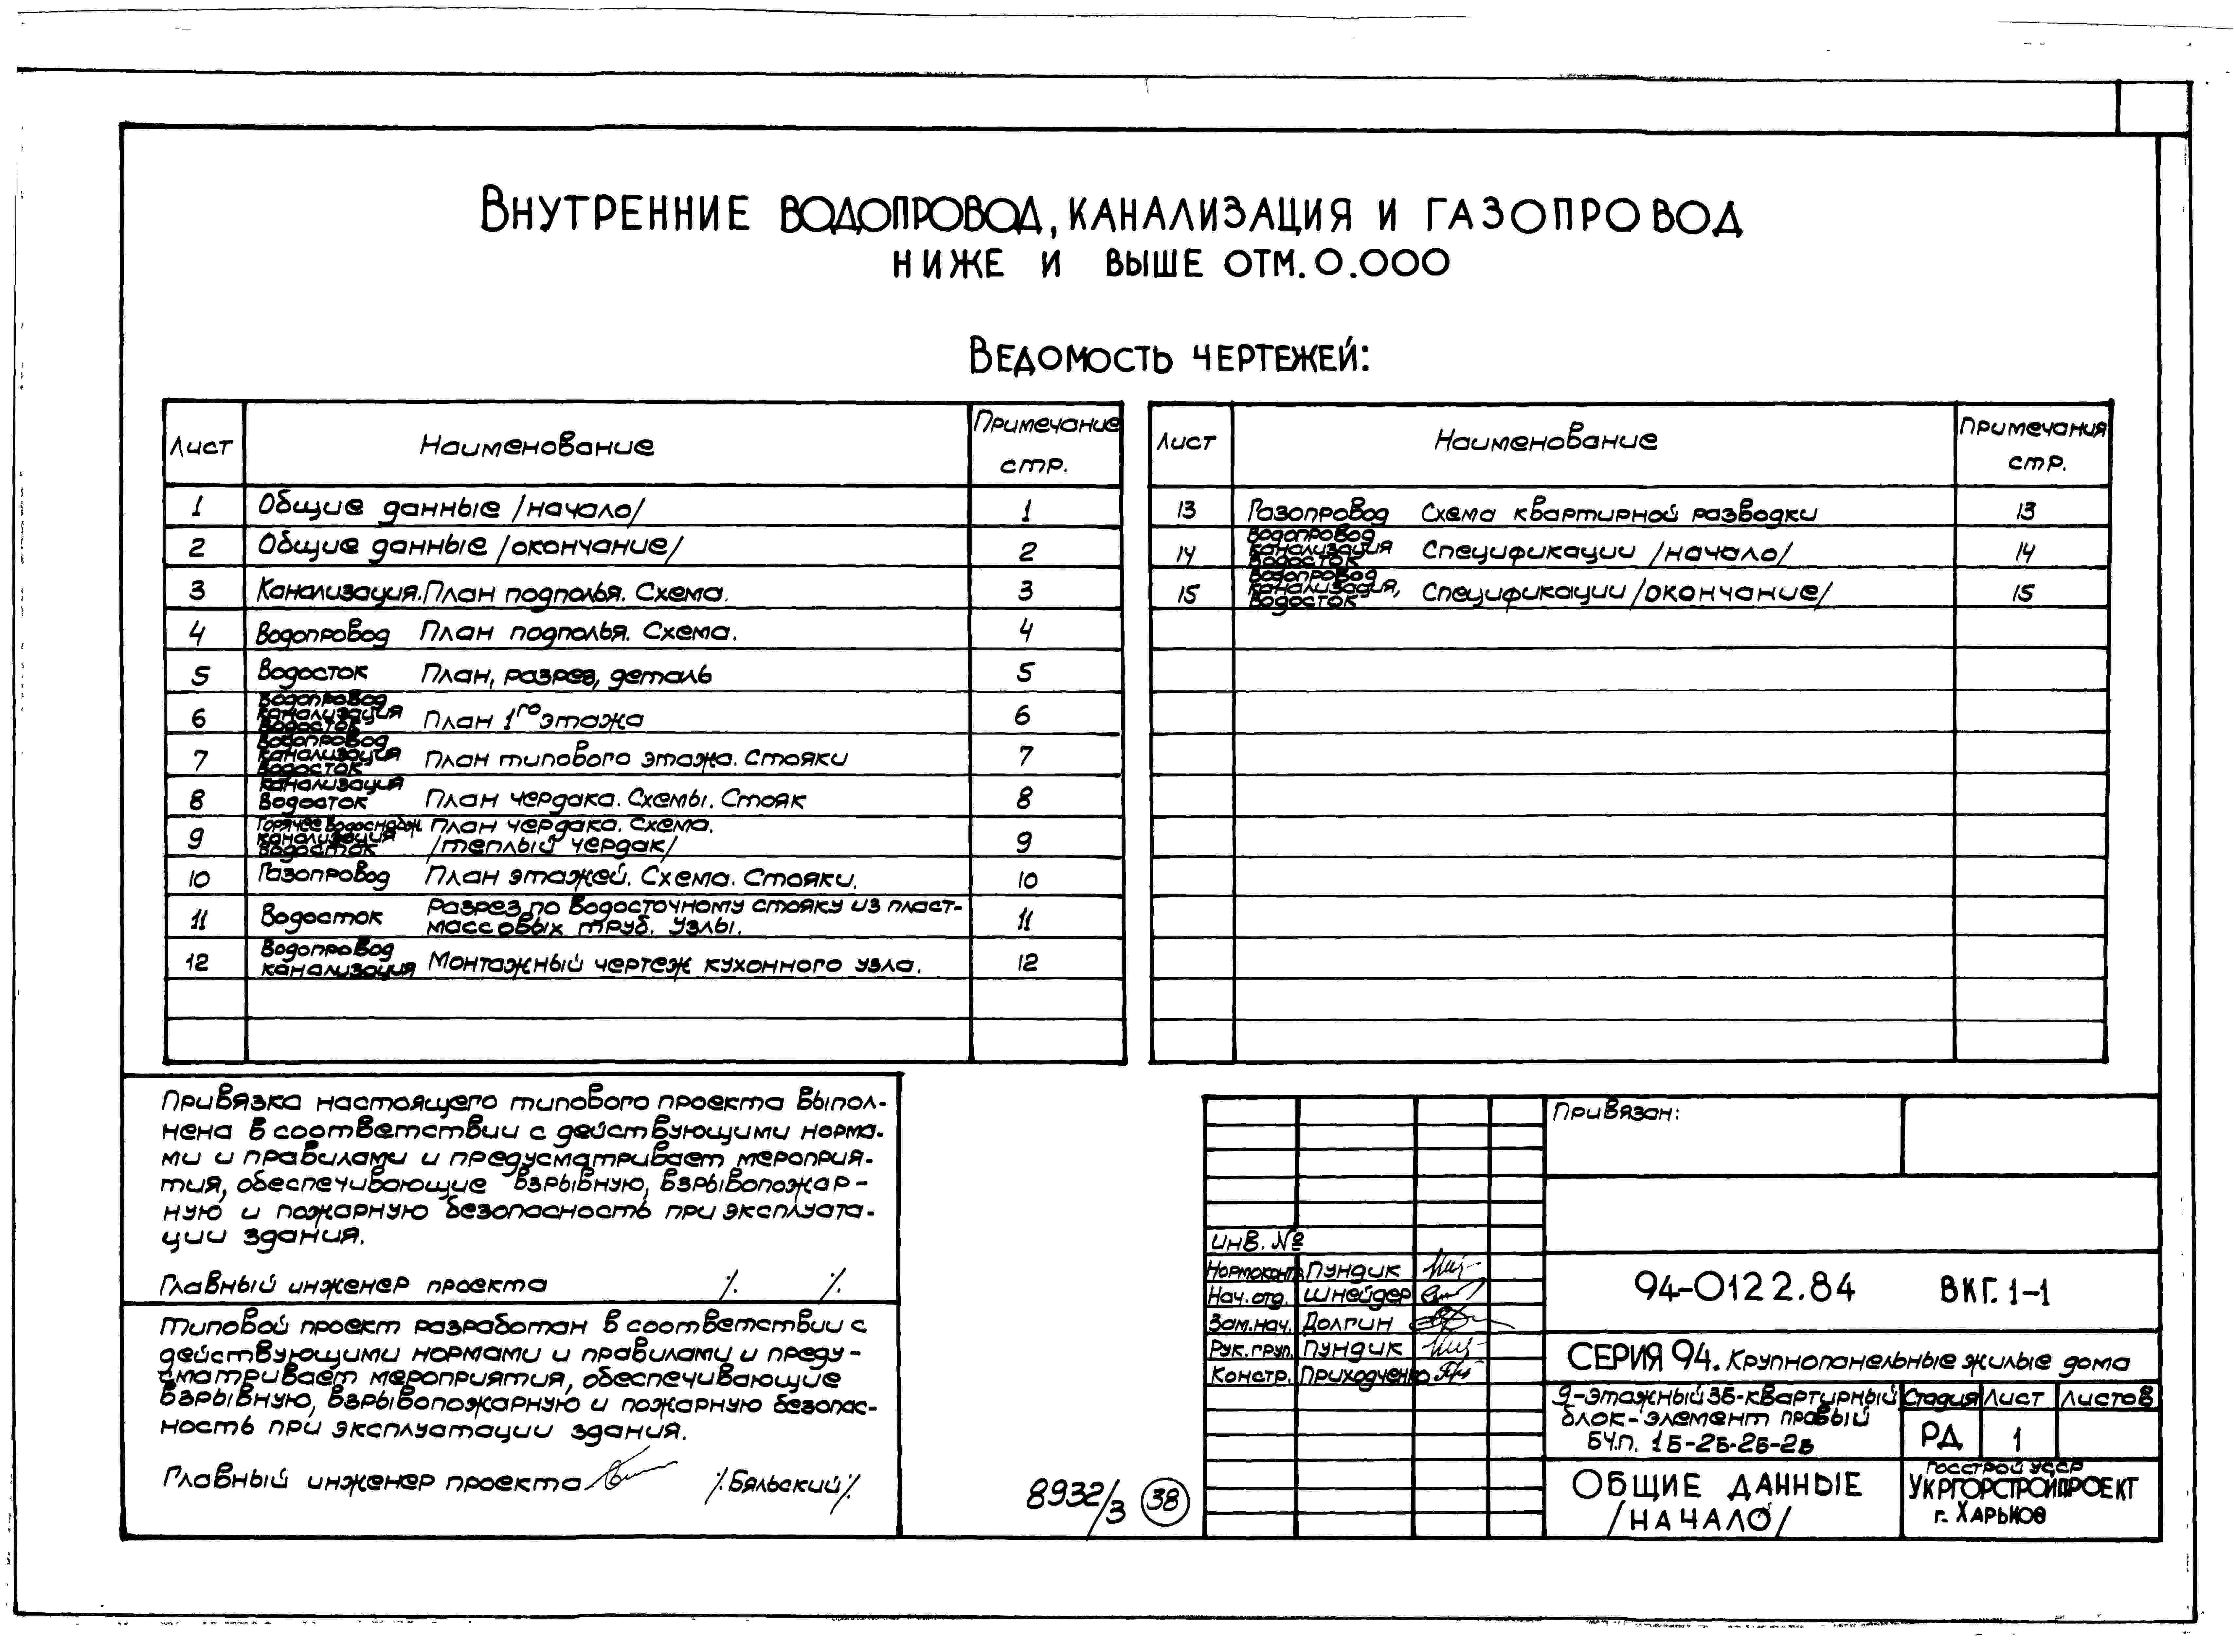 Внутренние водопровод, канализация и газопровод
ниже и выше отм. 0.000
Ведомость чертежей:
Лист Наименование Примечание стр.
1 Общие данные /начало/ 1
2 Общие данные /окончание/ 2
3 Канализация. План подполья. Схема. 3
4 Водопровод План подполья. Схема. 4
5 Водосток План, разрез, деталь 5
6 Водопровод канализация водосток План 1го этажа 6
7 Водопровод канализация водосток План типового этажа. Стояки 7
8 Канализация Водосток План чердака. Схемы. Стояк 8
9 Горячее водоснабж канализация водосток План чердака. Схема. /теплый чердак/ 9
10 Газопровод План этажей. Схема. Стояки. 10
11 Водосток Разрез по водосточному стояку из пласт-
массовых труб. Узлы. 11
12 Водопровод канализация Монтажный чертеж кухонного узла. 12
Лист Наименование Примечания стр.
13 Газопровод Схема квартирной разводки 13
14 Водопровод канализация водосток Спецификации /начало/ 14
15 Водопровод канализация, водосток Спецификации /окончание/ 15
Привязка настоящего типового проекта выпол-
нена в соответствии с действующими норма-
ми и правилами и предусматривает мероприя-
тия, обеспечивающие взрывную, взрывопожар-
ную и пожарную безопасность при эксплуата-
ции здания.
Главный инженер проекта /. /.
Типовой проект разработан в соответствии с
действующими нормами и правилами и преду-
сматривает мероприятия, обеспечивающие
взрывную, взрывопожарную и пожарную безопас-
ность при эксплуатации здания.
Главный инженер проекта /.Бяльский/.
8932/3 38
Привязан:
Инв. №
Нормоконтр Пундик
Нач. отд. Шнейдер
Зам. нач. Долгин
Рук. груп. Пундик
Констр. Приходченко
94-0122.84 ВКГ. 1-1
Серия 94. Крупнопанельные жилые дома
9-этажный 36-квартирный
блок-элемент правый
БЧ.п. 1Б-2Б-2Б-2В
Стадия Лист Листов
РД 1
Общие данные
/начало/
Госстрой УССР
УКРГОРСТРОЙПРОЕКТ
г. Харьков